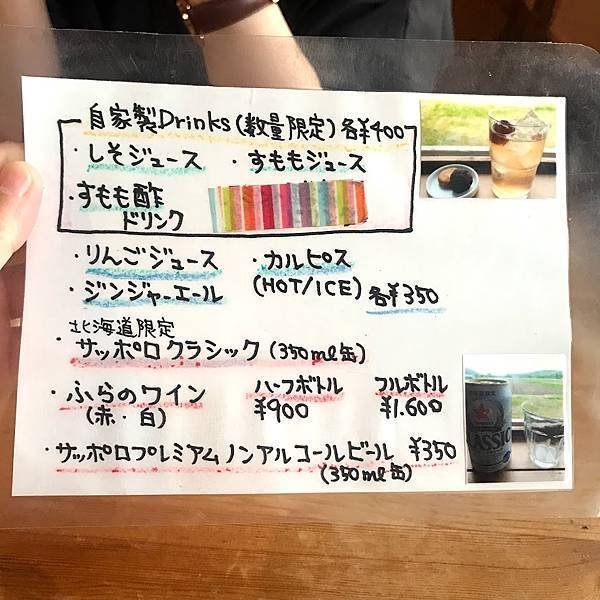 自家製Drinks(数量限定)各¥400
・しそジュース ・すももジュース
・すもも酢
ドリンク
・りんごジュース ・カルピス
・ジンジャーエール (HOT/ICE) 各¥350
北海道限定
・サッポロクラシック(350ml缶)
・ふらのワイン ハーフボトル フルボトル
(赤・白) ¥900 ¥1.600
・サッポロプレミアムノンアルコールビール ¥350
(350ml缶)